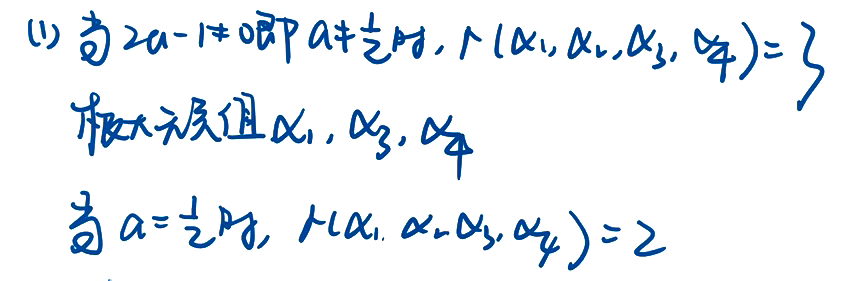 (1) 当2a-1≠0即a≠1/2时, r(α₁, α₂, α₃, α₄)=3
极大无关组α₁, α₃, α₄
当a=1/2时, r(α₁, α₂, α₃, α₄)=2